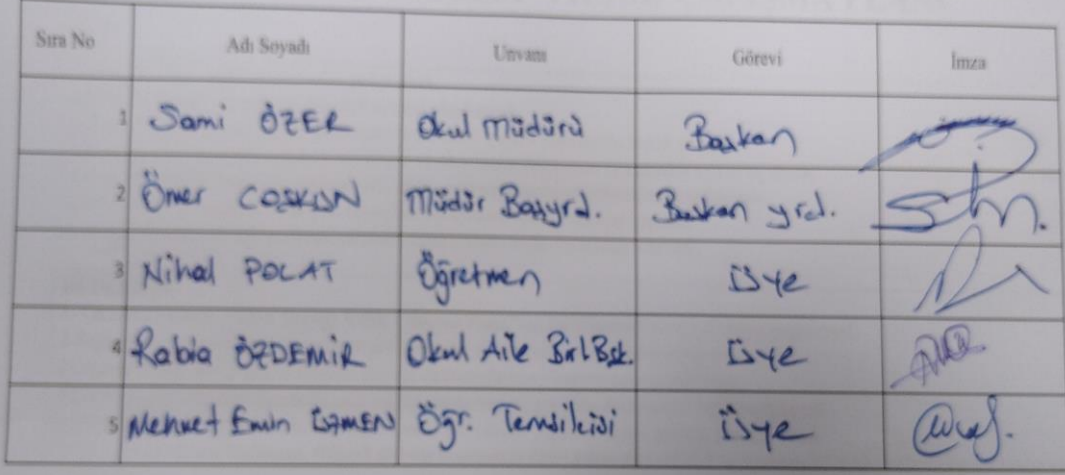 Sıra No Adı Soyadı Unvanı Görevi İmza
1 Sami ÖZER Okul Müdürü Başkan
2 Ömer COŞKUN Müdür Başyrd. Başkan yrd.
3 Nihal POLAT Öğretmen Üye
4 Rabia ÖZDEMİR Okul Aile Birl Bşk. Üye
5 Mehmet Emin Öğr. Temsilcisi Üye